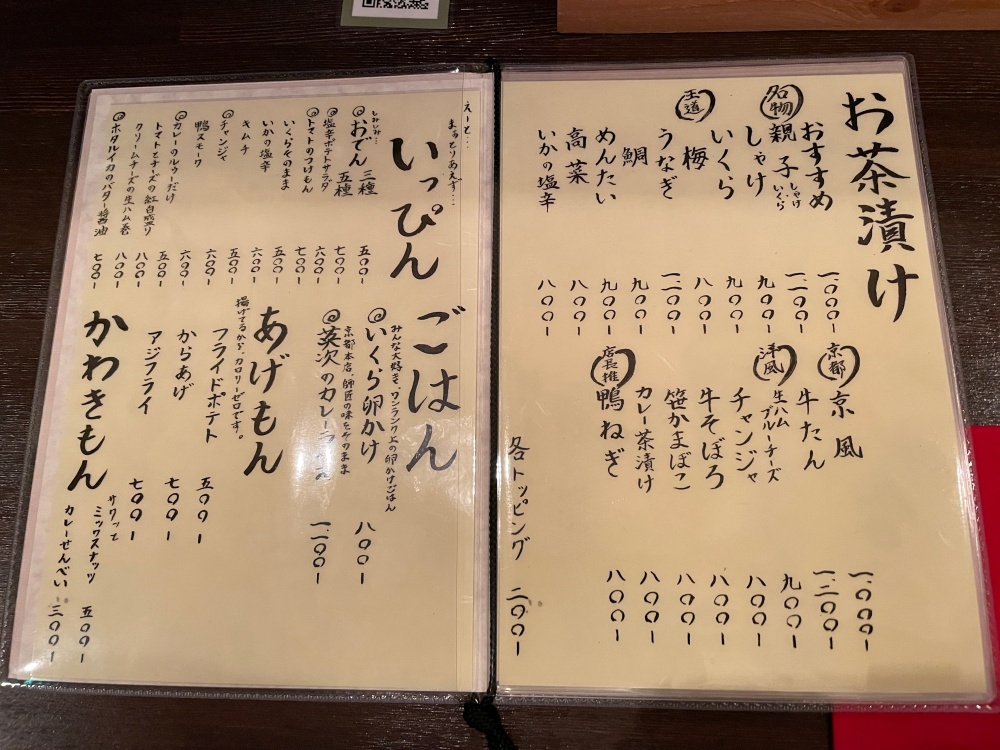 お茶漬け
おすすめ 一、〇〇〇ー
名物 親子 しゃけ いくら 一、二〇〇ー
しゃけ 九〇〇ー
いくら 九〇〇ー
王道 梅 八〇〇ー
うなぎ 一、二〇〇ー
鯛 九〇〇ー
めんたい 九〇〇ー
高菜 八〇〇ー
いかの塩辛 八〇〇ー
京都 京風 一、〇〇〇ー
牛たん 一、二〇〇ー
洋風 生ハム ブルーチーズ 九〇〇ー
チャンジャ 八〇〇ー
牛そぼろ 八〇〇ー
笹かまぼこ 八〇〇ー
カレー茶漬け 八〇〇ー
店長推 鴨ねぎ 八〇〇ー
各トッピング 二〇〇ー
えーと…
まぁとりあえず…
いっぴん
しみしみ…
おでん 三種 五〇〇ー
五種 七〇〇ー
塩辛ポテトサラダ 六〇〇ー
トマトのつけもん 七〇〇ー
いくらそのまま 五〇〇ー
いかの塩辛 六〇〇ー
キムチ 五〇〇ー
チャンジャ 六〇〇ー
鴨スモーク 六〇〇ー
カレーのルゥーだけ 五〇〇ー
トマトとチーズの紅白盛り 八〇〇ー
クリームチーズの生ハム巻 八〇〇ー
ホタルイカのバター醤油 七〇〇ー
ごはん
みんな大好き、ワンランク上の卵かけごはん
いくら卵かけ 八〇〇ー
京都本店、師匠の味をそのまま
英次のカレー 一、二〇〇ー
あげもん
揚げてるから、カロリーゼロです。
フライドポテト 五〇〇ー
からあげ 七〇〇ー
アジフライ 七〇〇ー
かわきもん
サクッと
ミックスナッツ 五〇〇ー
カレーせんべい 三〇〇ー